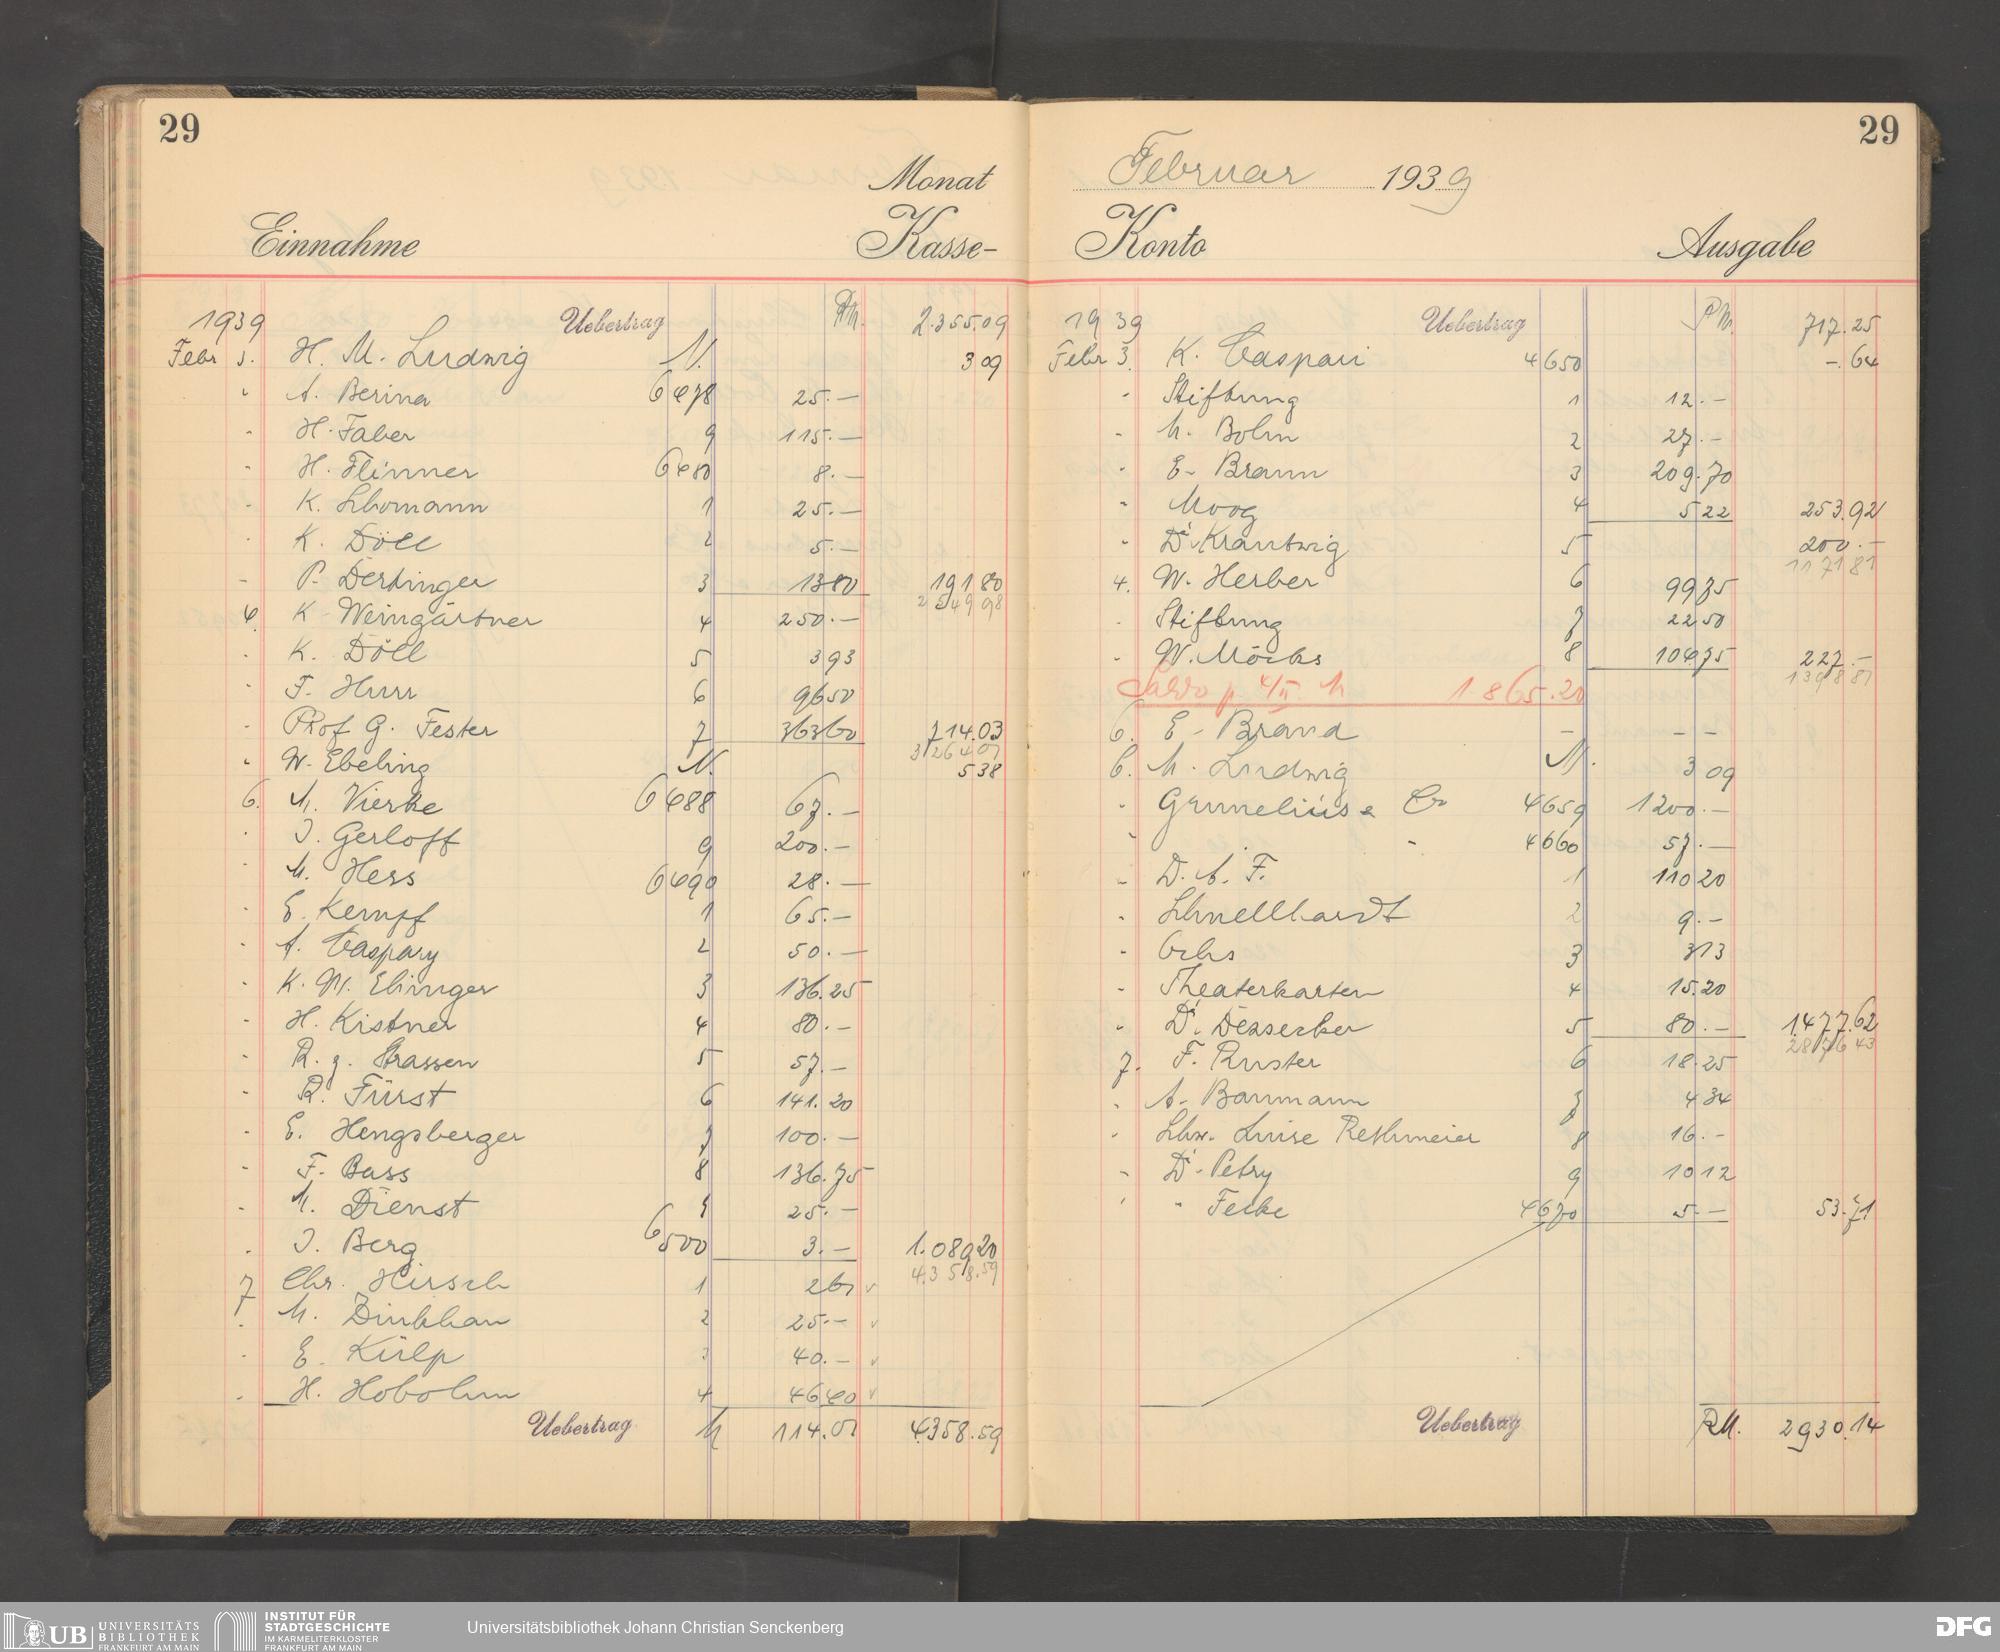 29
Monat
Einnahme Kasse-
1939 Uebertrag RM. 2.355.09
Febr 3. H. M. Ludwig N. 3 09
" A. Berina 6478 25.—
" H. Faber 9 115.—
" H. Flinner 6480 8.—
" K. 1 25.—
" K. Döll 2 5.—
" P. Dertinger 3 13 80 191 80
2549 98
4. K. Weingärtner 4 250.—
" K. Döll 5 3 93
" F. Hurr 6 96 50
" Prof G. Fester 7 363 60 714.03
3264 01
" W. Ebeling N. 5 38
6. M. Vierke 6488 67.—
" J. Gerloff 9 200.—
" M. Hess 6490 28.—
" E. Kempf 1 65.—
" A. Caspary 2 50.—
" K. W. Ebinger 3 136.25
" H. Kistner 4 80.—
" R. z. Strassen 5 57.—
" R. Fürst 6 141.20
" E. Hengsberger 7 100.—
" F. Bass 8 136.75
" M. Dienst 9 25.—
" J. Berg 6500 3.— 1.089 20
4.358.59
7 Chr. Hirsch 1 2 61 v
" M. Dinkhau 2 25.— v
" E. Külp 3 40.— v
" H. Hobohm 4 46 40 v
Uebertrag M 114.01 4.358.59
29
Februar 1939
Konto Ausgabe
1939 Uebertrag RM. 717.25
Febr 3. K. Caspari 4650 —.64
" Stiftung 1 12.—
" M. Bohn 2 27.—
" E. Braun 3 209.70
" Moog 4 5 22 253.92
" Dr. Krantwig 5 200.—
1171 81
4. W. Herber 6 99 75
" Stiftung 7 22 50
" W. Möcks 8 104 75 227.—
1398 81
Saldo p 4/II. M 1.865.20
6. E. Brand — — —
6. M. Ludwig N. 3 09
" Grunelius & Co 4659 1200.—
" " " 4660 57.—
" D. A. F. 1 110 20
" Schnellhardt 2 9.—
" Ochs 3 3 13
" Theaterkarten 4 15.20
" Dr. Desseker 5 80.— 1.477.62
2876 43
7. F. Ruster 6 18.25
" A. Baumann 7 4 34
" Schw. Luise Rethmeier 8 16.—
" Dr. Petry 9 10 12
" " Fecke 4670 5.— 53.71
Uebertrag RM. 2930.14
UB UNIVERSITÄTS
BIBLIOTHEK
FRANKFURT AM MAIN
INSTITUT FÜR
STADTGESCHICHTE
IM KARMELITERKLOSTER
FRANKFURT AM MAIN
Universitätsbibliothek Johann Christian Senckenberg
DFG